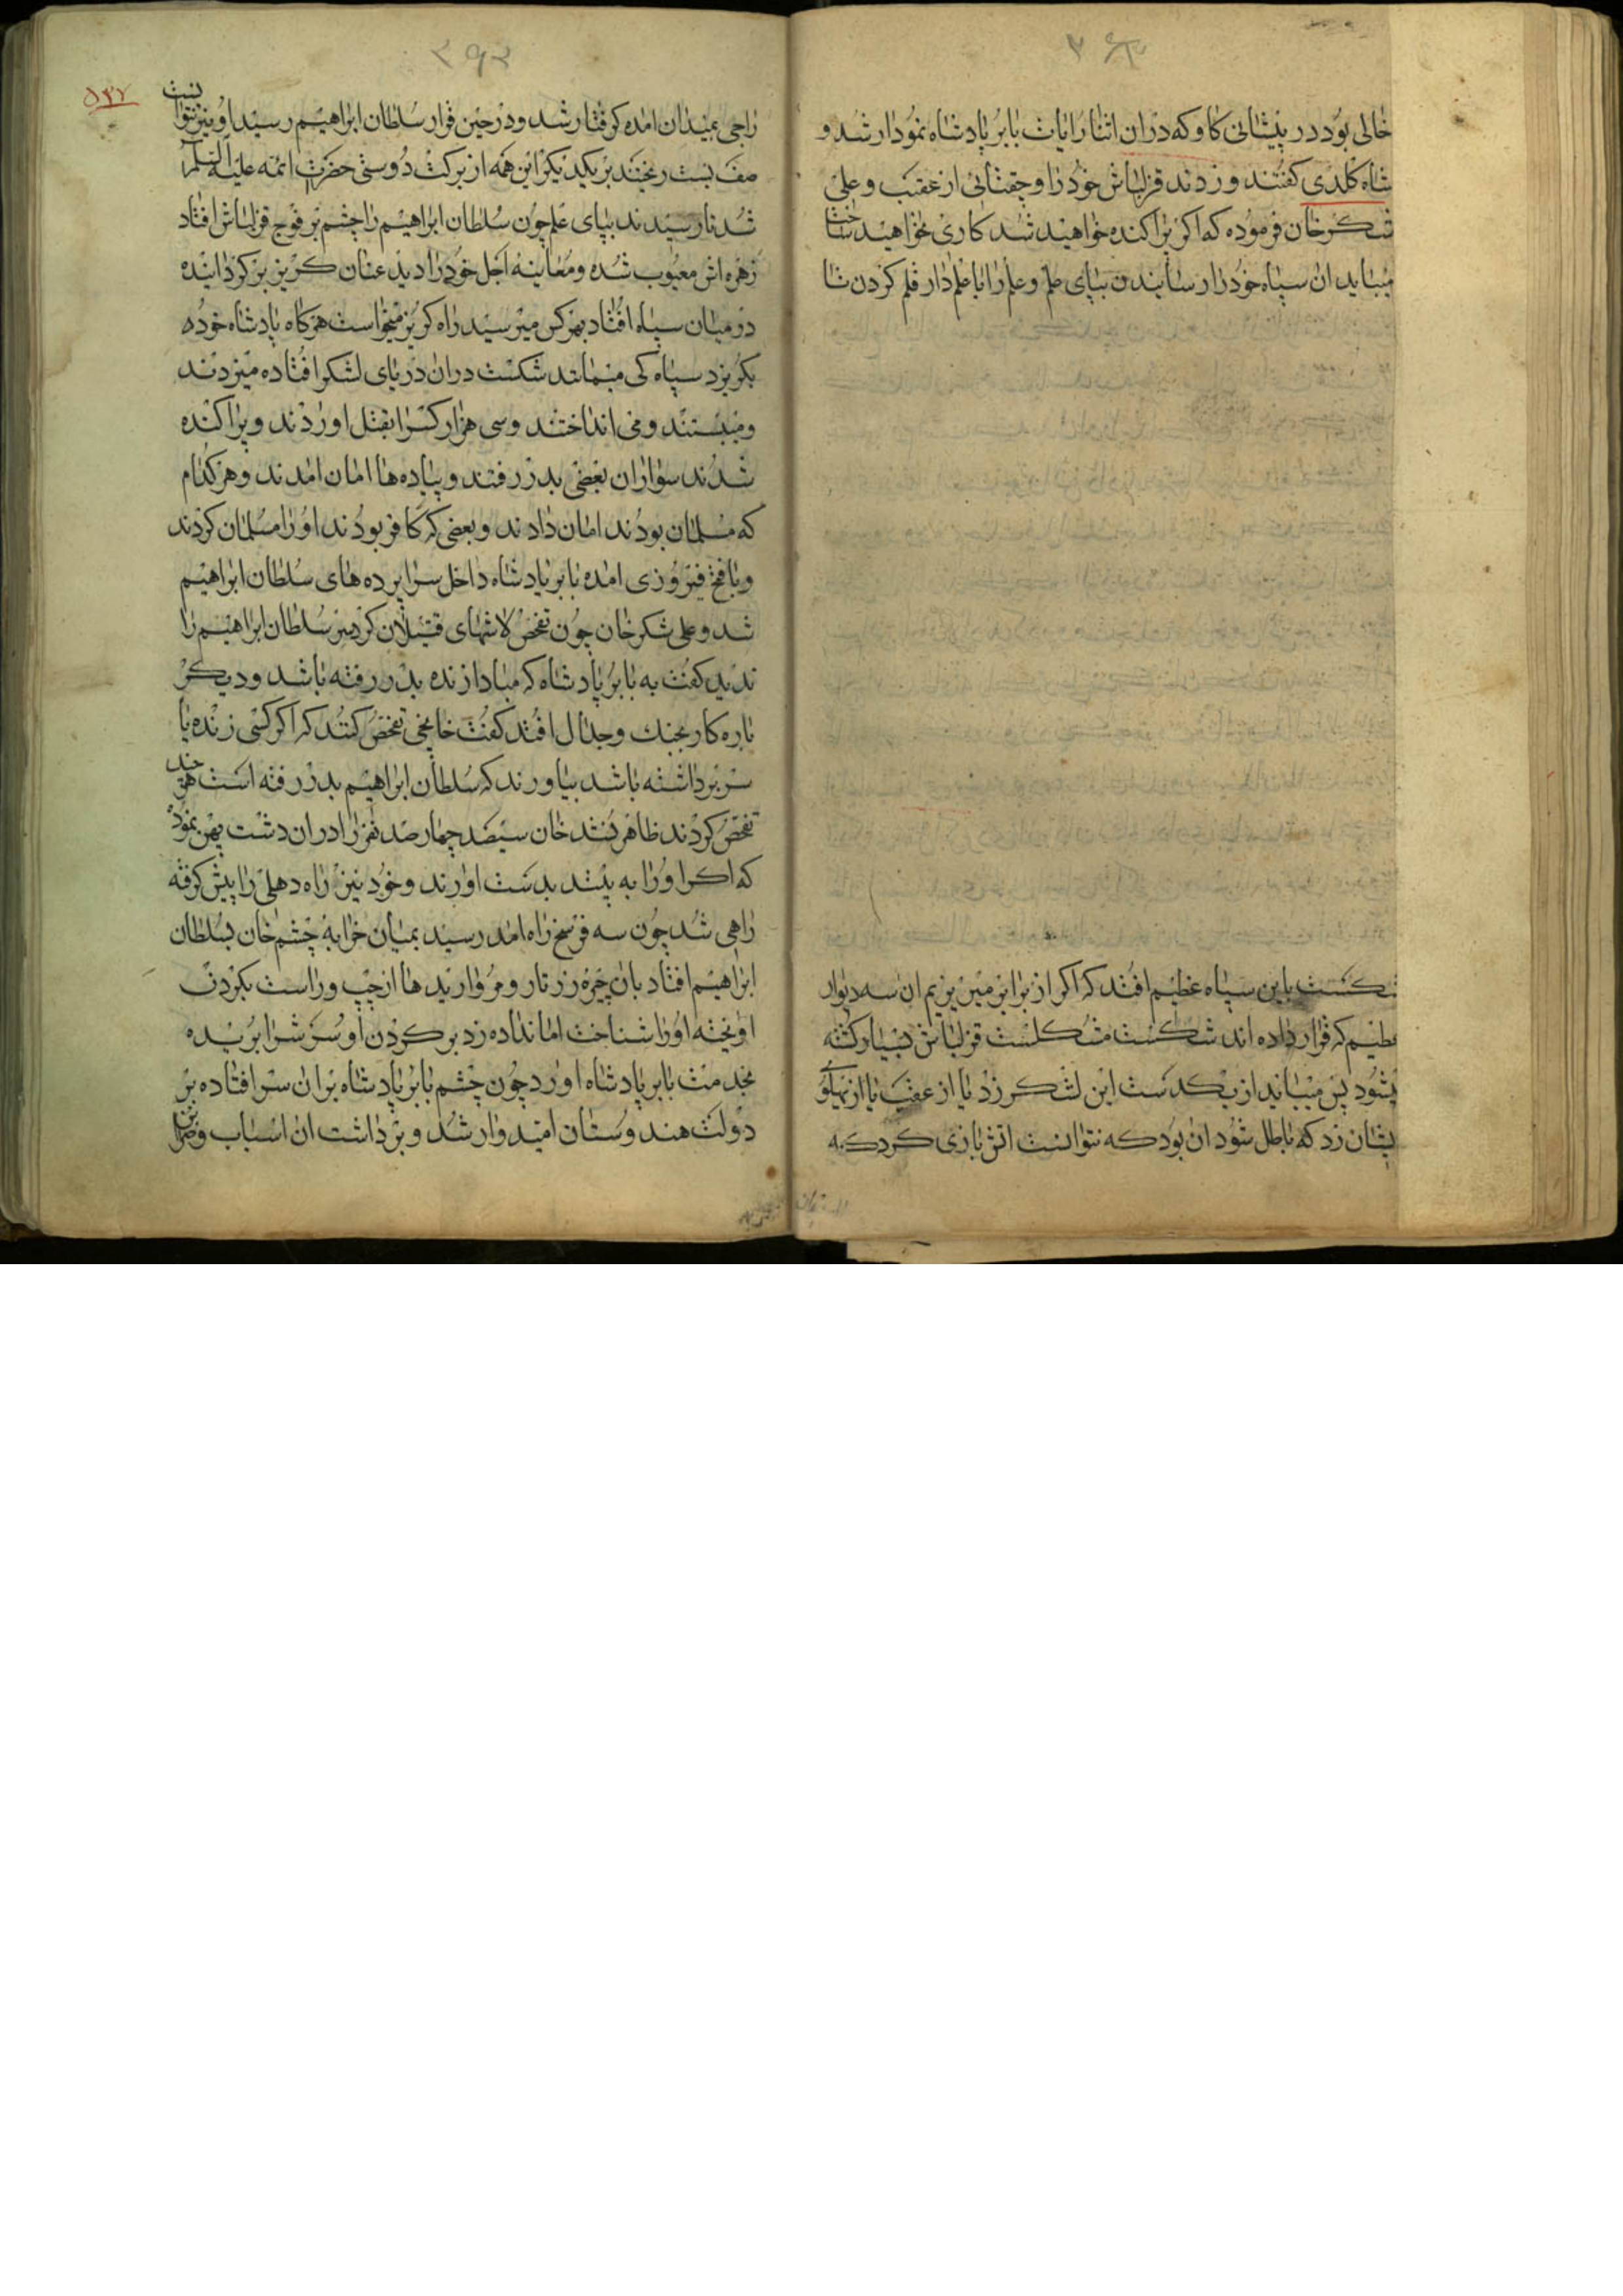 خالی بود در پیشانی کاو که دران اثنا رایات بابر پادشاه نمودار شد و
شاه کلدی کفتند و زدند قزلباش خود را و چغتائی از عقب و علی
شکر خان فرموده که اکر پراکنده خواهید شد کاری نخواهید ساخت
میباید ان سپاه خود را رسانیدن بپای علم و علم را با علمدار قلم کردن تا
شکست باین سپاه عظیم افتد که اکر از برابر میریزیم ان سه دیوار
عظیم که قرار داده اند شکست مشکلست قزلباش بسیار کشته
میشود پس میباید از یکدست این لشکر زد یا از عقب یا از پهلوی
ایشان زد که باطل شود ان بود که نتوانست اتش بازی کرد که
۳۹۲
۵۳۷
راجی بمیدان امده کرفتار شد و در حین قرار سلطان ابراهیم رسید او نیز نتوانست
صف بست ریختند بریکدیکر این همه از برکت دوستی حضرت ائمه علیه السلام
شد تا رسیدند بپای علم چون سلطان ابراهیم را چشم بر فوج قزلباش افتاد
زهره اش معیوب شده و معاینه اجل خود را دید عنان کریز برکردانیده
در میان سپاه افتاد بهر کس میرسید راه کریز میخواست هرکاه پادشاه خود
بکریزد سپاه کی میماند شکست دران دریای لشکر افتاده میزدند
و میبستند و می انداختند و سی هزار کس را بقتل اوردند و پراکنده
شدند سواران بعضی بدر رفتند و پیاده ها امان امدند و هر کدام
که مسلمان بودند امان دادند و بعضی که کافر بودند او را مسلمان کردند
و با فتح فیروزی امده بابر پادشاه داخل سراپرده های سلطان ابراهیم
شد و علی شکر خان چون تفحص لاشهای قتیلان کرد سر سلطان ابراهیم را
ندید کفت به بابر پادشاه که مبادا زنده بدر رفته باشد و دیکر
باره کار بجنک و جدال افتد کفت خانجی تفحص کنند که اکر کسی زنده یا
سر برداشته باشد بیاورند که سلطان ابراهیم بدر رفته است هر چند
تفحص کردند ظاهر نشد خان سیصد چهار صد نفر را دران دشت پهن نمود
که اکر او را به بینند بدست اورند و خود نیز راه دهلی را پیش کرفته
راهی شد چون سه فرسخ راه امد رسید بمیان خرابه چشم خان بسلطان
ابراهیم افتاد بان چیره زرتار و مروارید ها از چپ و راست بکردن
اویخته او را شناخت امان نداده زد بر کردن او و سرش را بریده
بخدمت بابر پادشاه اورد چون چشم بابر پادشاه بران سر افتاده بر
دولت هندوستان امیدوار شد و برداشت ان اسباب و خزاین